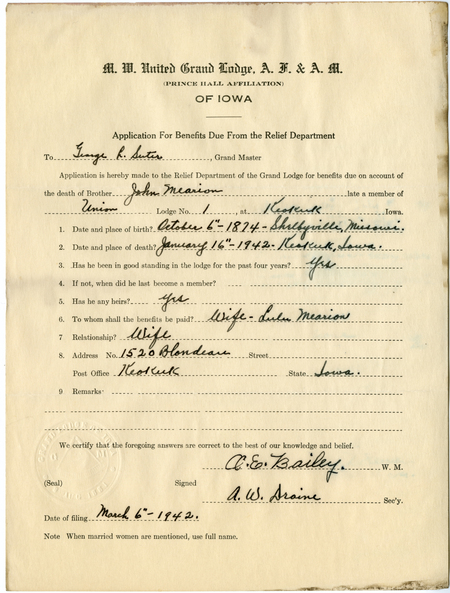 M. W. United Grand Lodge, A. F. & A. M.
(PRINCE HALL AFFILIATION)
OF IOWA
Application For Benefits Due From the Relief Department
To George R. Suter, Grand Master
Application is hereby made to the Relief Department of the Grand Lodge for benefits due on account of
the death of Brother John Mearion late a member of
Union Lodge No. 1 at Keokuk Iowa.
1. Date and place of birth? October 6" - 1874 - Shelbyville, Missouri.
2. Date and place of death? January 16" - 1942 - Keokuk, Iowa.
3. Has he been in good standing in the lodge for the past four years? Yes
4. If not, when did he last become a member? -
5. Has he any heirs? yes
6. To whom shall the benefits be paid? Wife - Lulu Mearion
7 Relationship? Wife
8. Address No. 1520 Blondeau Street
Post Office Keokuk State Iowa.
9 Remarks
We certify that the foregoing answers are correct to the best of our knowledge and belief,
C. E. Bailey. W. M.
(Seal) Signed
A. W. Draine Sec'y.
Date of filing March 6" - 1942.
Note When married women are mentioned, use full name.